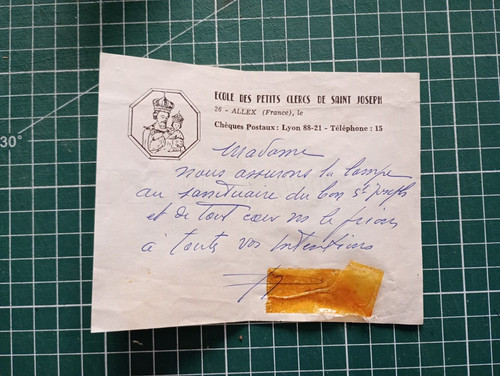 ECOLE DES PETITS CLERCS DE SAINT JOSEPH
26 - ALLEX (France), le
Chèques Postaux : Lyon 88-21 - Téléphone : 15
Madame
nous assurons la lampe
au sanctuaire du bon St Joseph
et de tout cœur ns le prions
à toutes vos intentions
30°